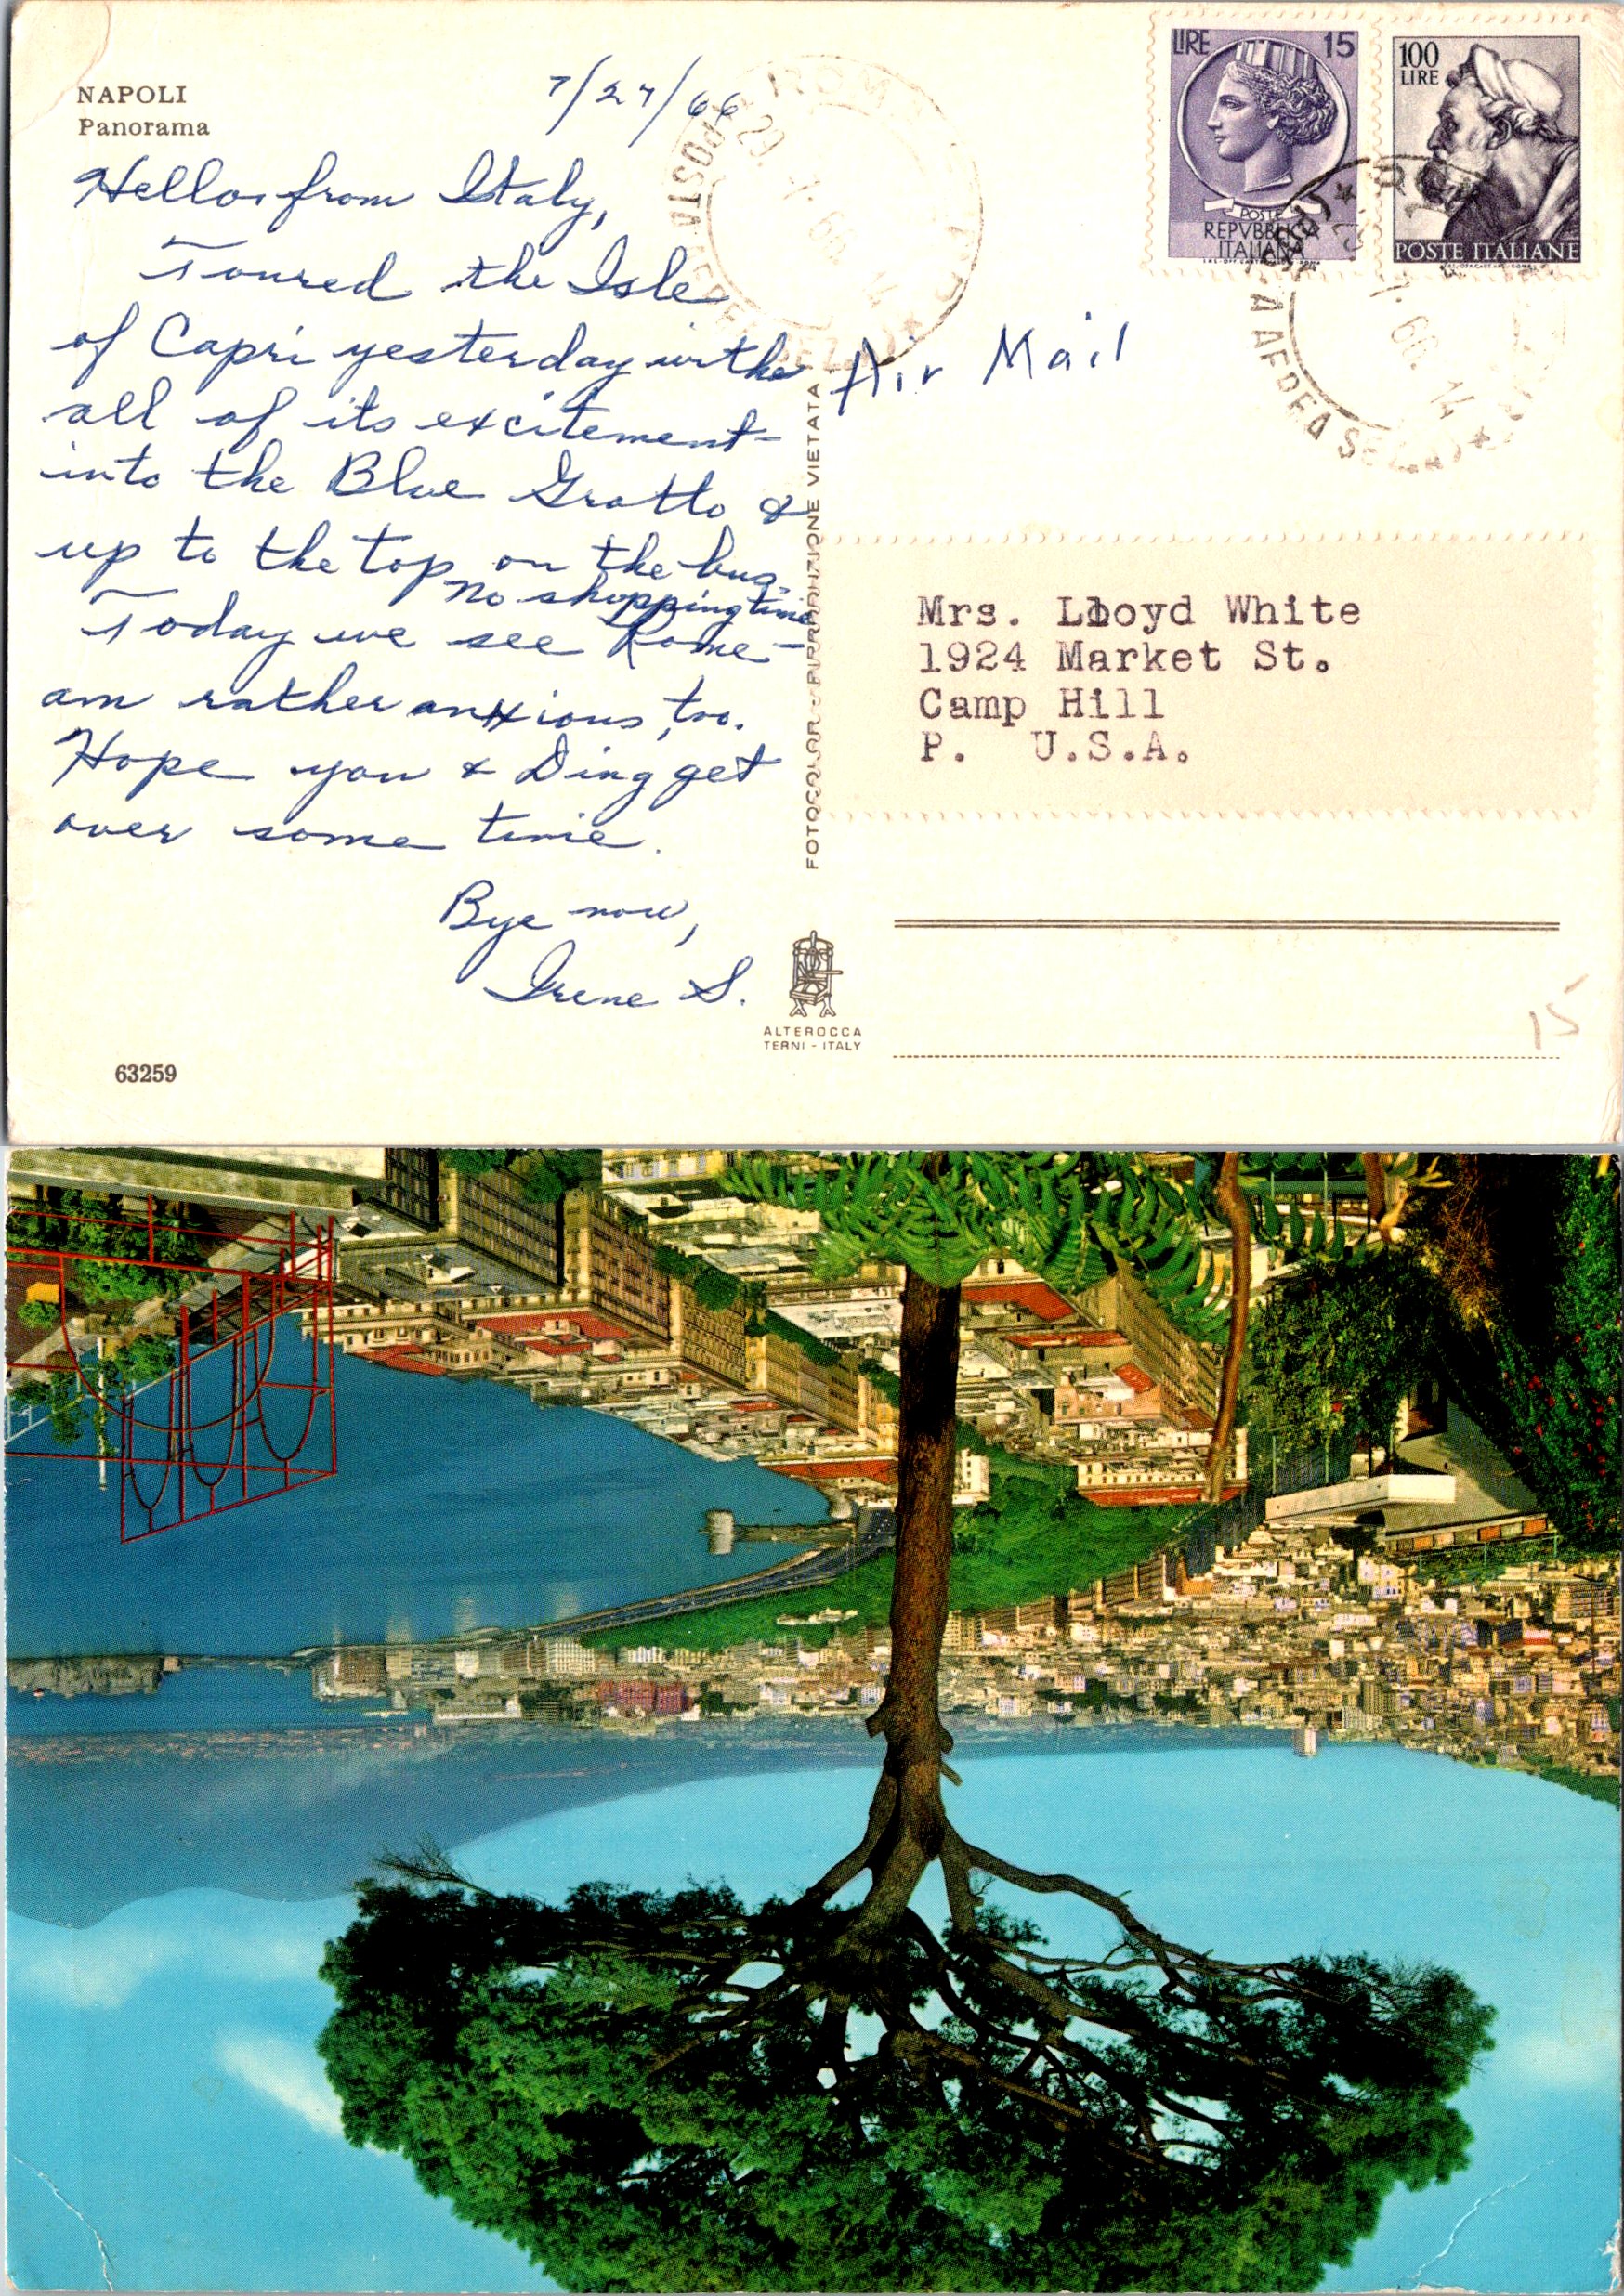 NAPOLI
Panorama
7/27/66
Hello from Italy,
Toured the Isle
of Capri yesterday with
all of its excitement-
into the Blue Grotto &
up to the top on the bus.
No shopping time
Today we see Rome-
am rather anxious, too.
Hope you & Ding get
over some time.
Bye now,
Irene S.
63259
FOTOCOLOR - RIPRODUZIONE VIETATA
ALTEROCCA
TERNI - ITALY
LIRE 15
POSTE
REPVBBLICA
ITALIANA
100
LIRE
POSTE ITALIANE
ROMA
POSTA AEREA
29. 7. 66. 14
POSTA AEREA SEZ.
7. 66. 14
Air Mail
Mrs. Lloyd White
1924 Market St.
Camp Hill
P. U.S.A.
15